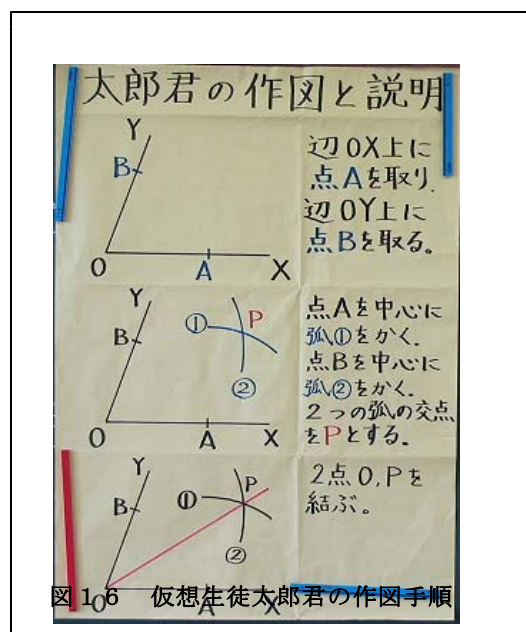 太郎君の作図と説明
Y
B
O
A
X
辺OX上に
点Aを取り,
辺OY上に
点Bを取る。
Y
B
①
P
②
O
A
X
点Aを中心に
弧①をかく.
点Bを中心に
弧②をかく.
2つの弧の交点
をPとする。
Y
B
①
P
②
O
A
X
2点O,Pを
結ぶ。
図16 仮想生徒太郎君の作図手順